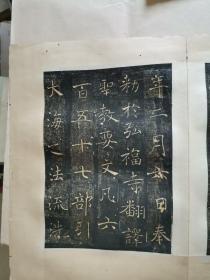 年二月六日奉
勅於弘福寺翻譯
聖教要文凡六
百五十七部引
大海之法流洗